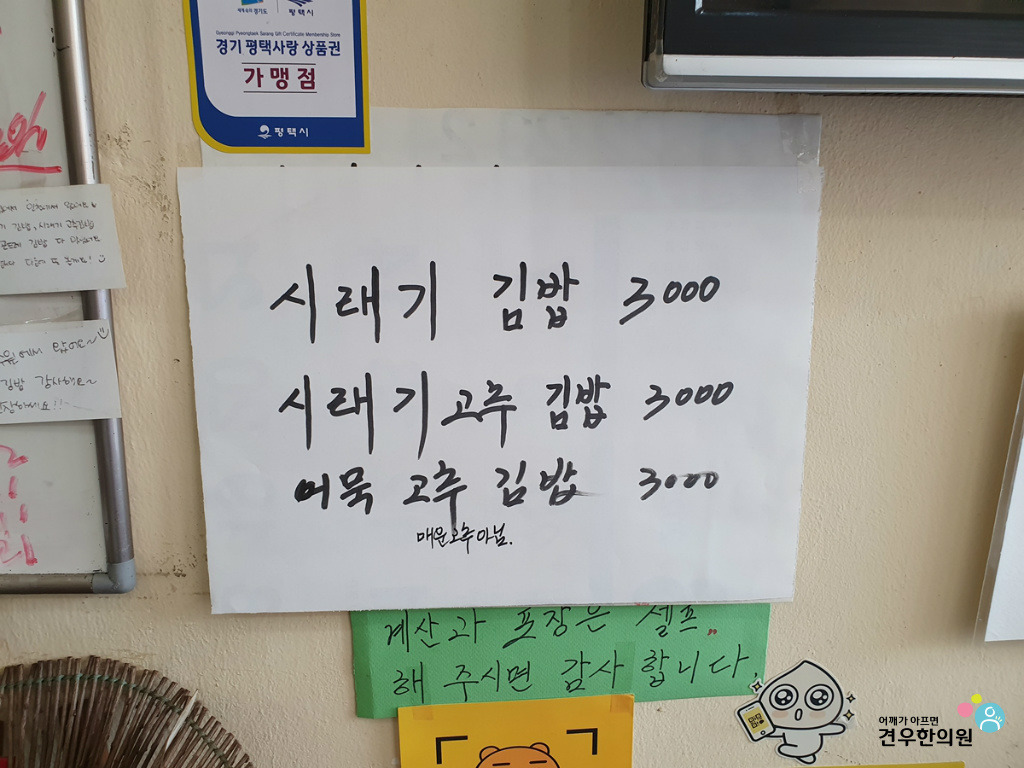 평택시
Gyeonggi Pyeongtaek Sarang Gift Certificate Membership Store
경기 평택사랑 상품권
가맹점
평택시
시래기 김밥 3000
시래기고추 김밥 3000
어묵 고추 김밥 3000
매운고추아님.
계산과 포장은 셀프
해 주시면 감사합니다.
김밥 감사해요~
어깨가 아프면
견우한의원